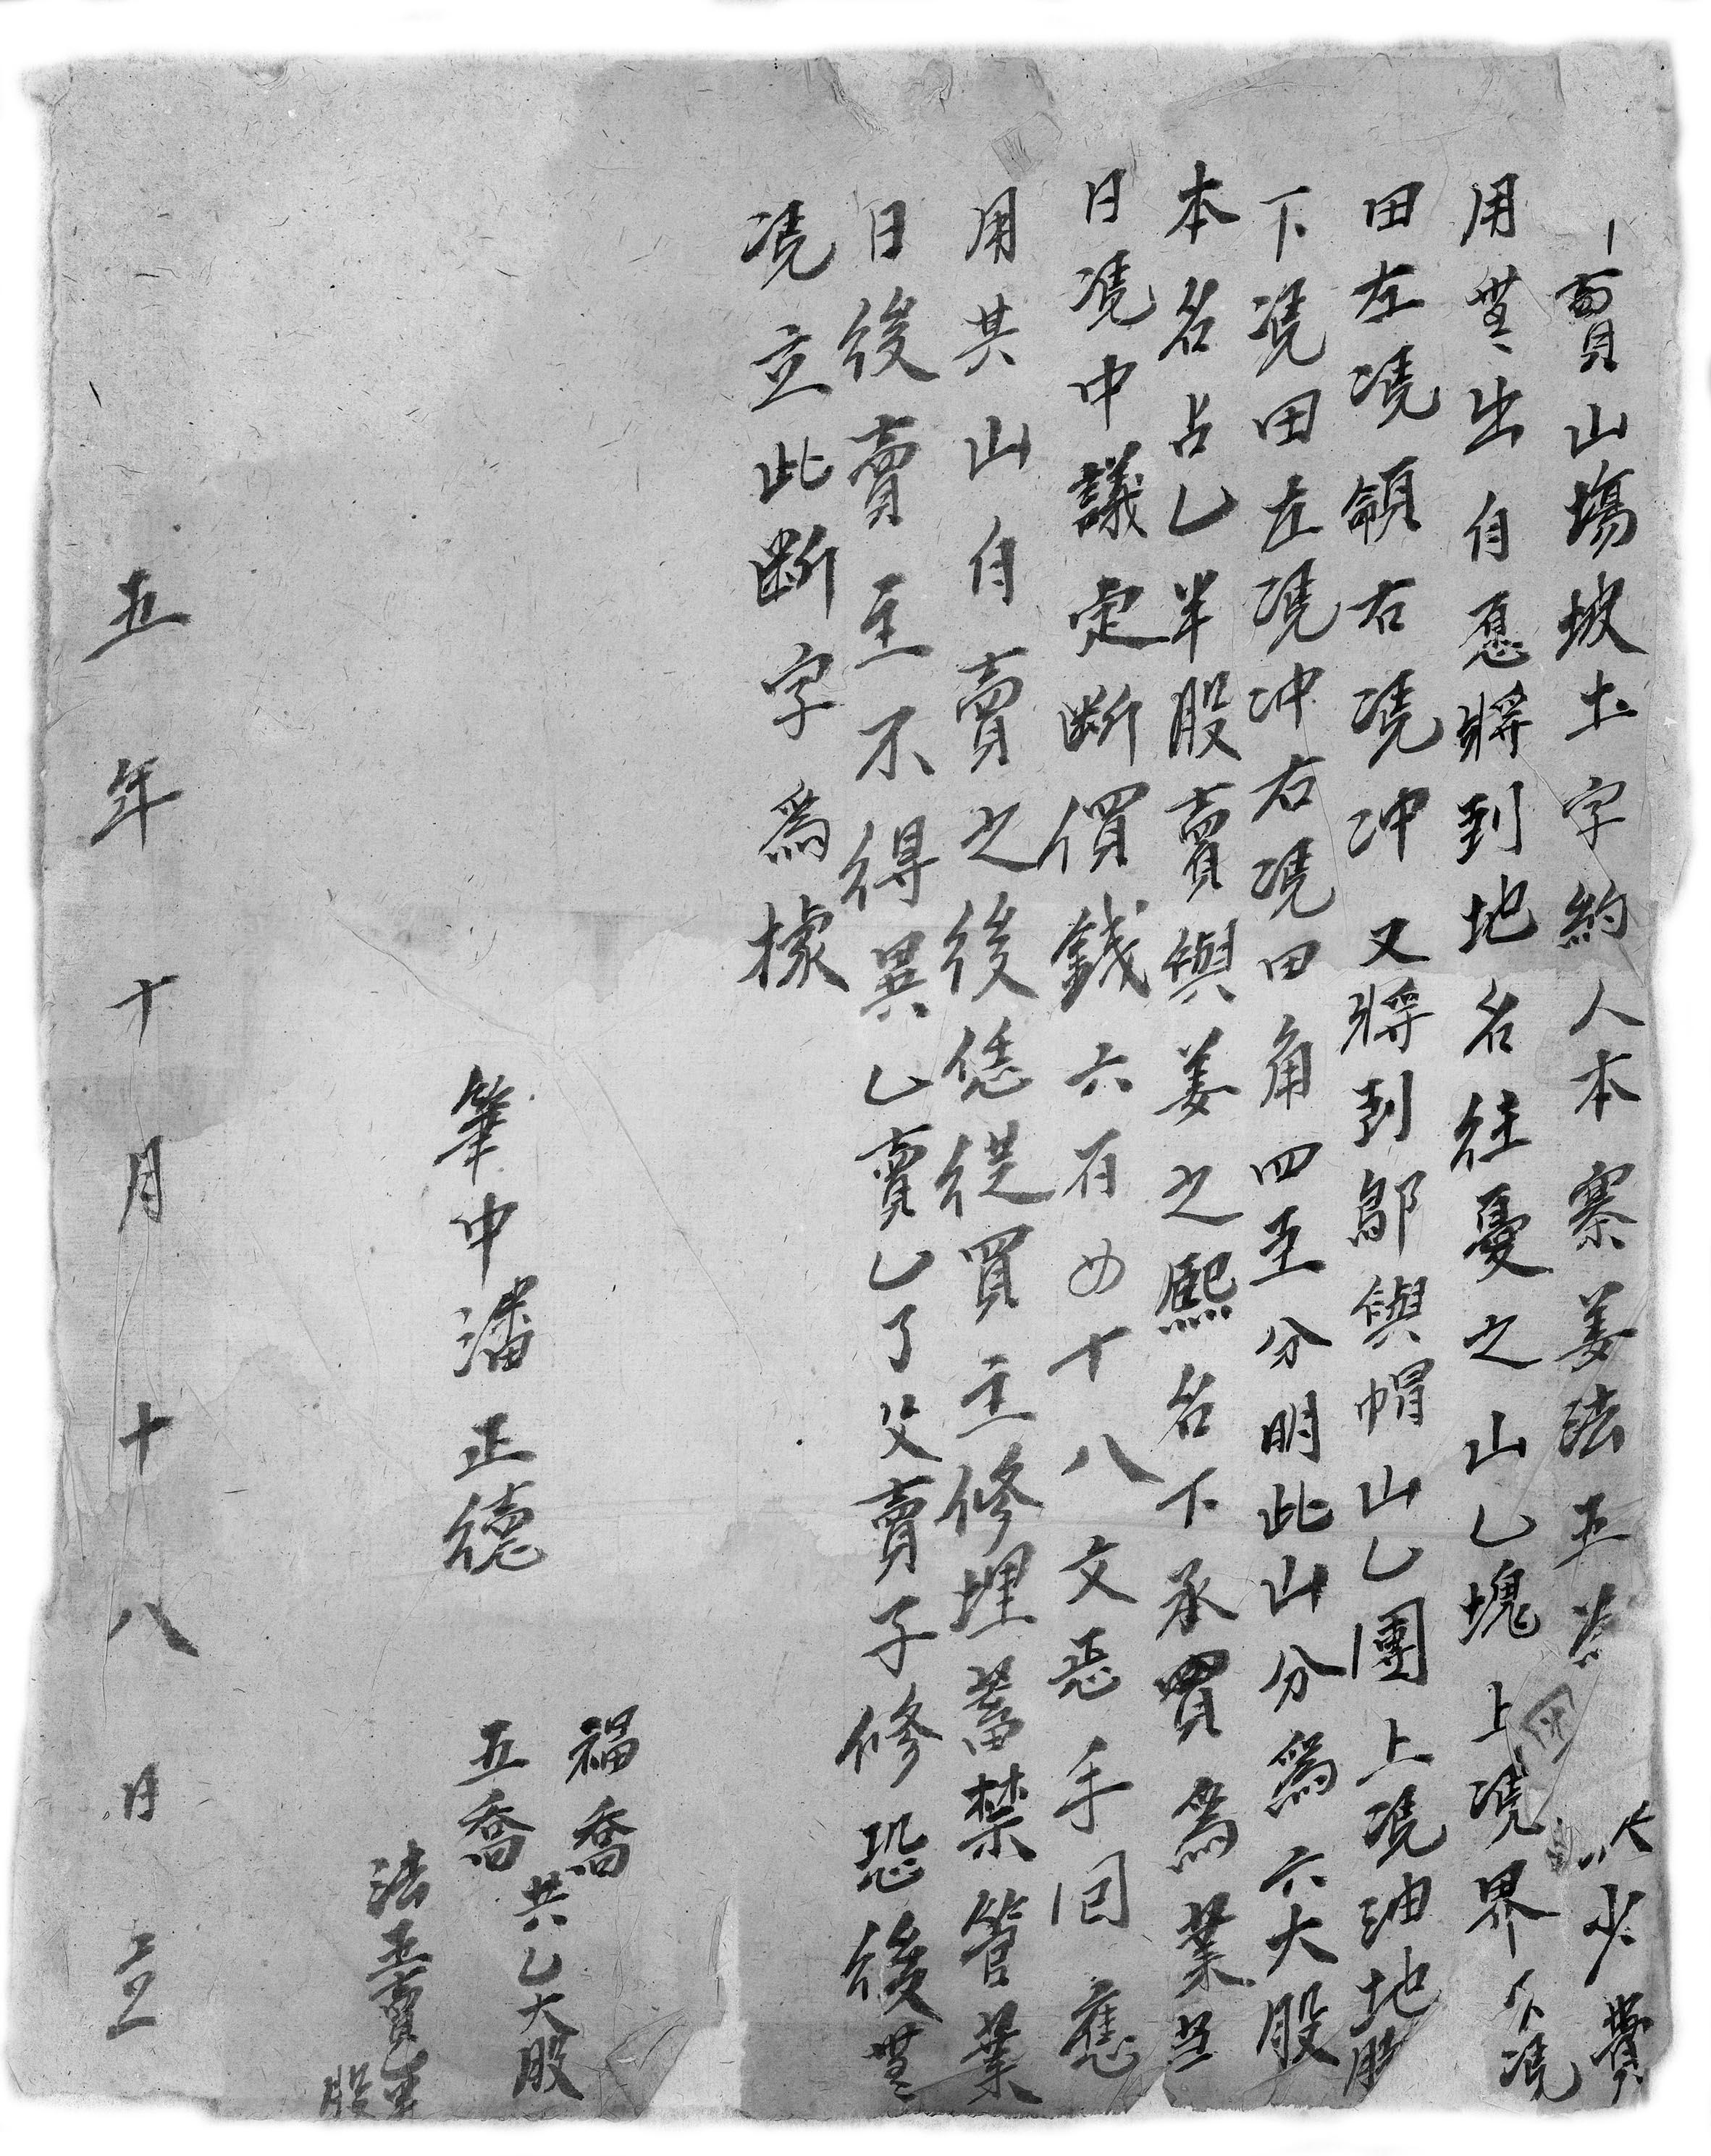 賣山塲坡土字約人本寨姜法五
少費
用無出自愿將到地名往憂之山乚塊上凴界下凴
田左凴領右凴冲又將到鄔與帽山乚團上凴油地
下凴田左凴冲右凴田角四至分明此山分爲六大股
本名占乚半股賣與姜之熙名下承買爲業
日凴中議定斷價錢六百四十八文悉手回應
用其山自賣之後恁從買主修理蓄禁管業
日後賣主不得異乚賣乚了父賣子修恐後無
凴立此斷字爲據
福喬
五喬
共乚大股
法五賣半股
筆中潘正德
五年十月十八日立